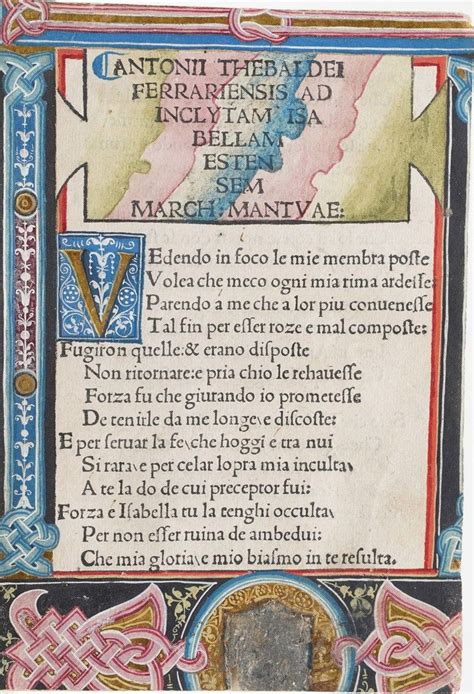 ANTONII THEBALDEI
FERRARIENSIS AD
INCLYTAM ISA
BELLAM
ESTEN
SEM
MARCH: MANTVAE:
Vedendo in foco le mie membra poste
Volea che meco ogni mia rima ardesse:
Parendo a me che a lor piu conuenesse
Tal fin per esser roze e mal composte:
Fugiron quelle: & erano disposte
Non ritornare: e pria chio le rehauesse
Forza fu che giurando io prometesse
De tenirle da me longe\e discoste:
E per seruar la fe\che hoggi e tra nui
Si rara\e per celar lopra mia inculta\
A te la do de cui preceptor fui:
Forza e Isabella tu la tenghi occulta\
Per non esser ruina de ambedui:
Che mia gloria\e mio biasmo in te resulta.